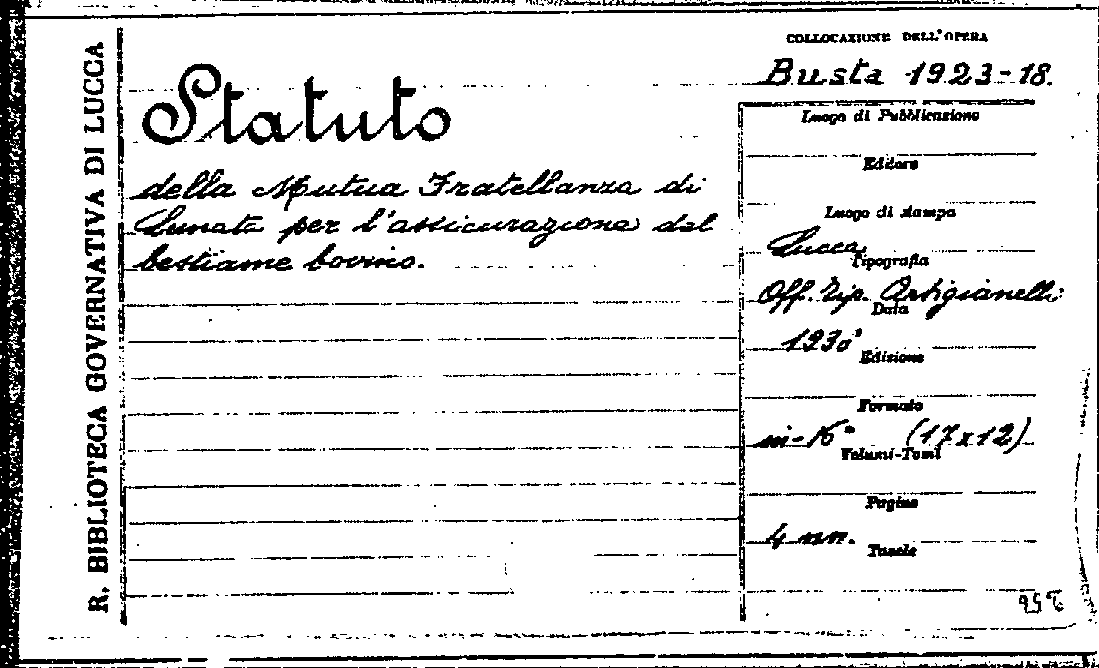 R. BIBLIOTECA GOVERNATIVA DI LUCCA
Statuto
della Mutua Fratellanza di
Lunata per l'assicurazione del
bestiame bovino.
COLLOCAZIONE DELL'OPERA
Busta 1923-18.
Luogo di Pubblicazione
Editore
Luogo di stampa
Lucca,
Tipografia
Off. Tip. Artigianelli
Data
1930
Edizione
Formato
in-16° (17x12)
Volumi-Tomi
Pagine
4 nn.
Tavole